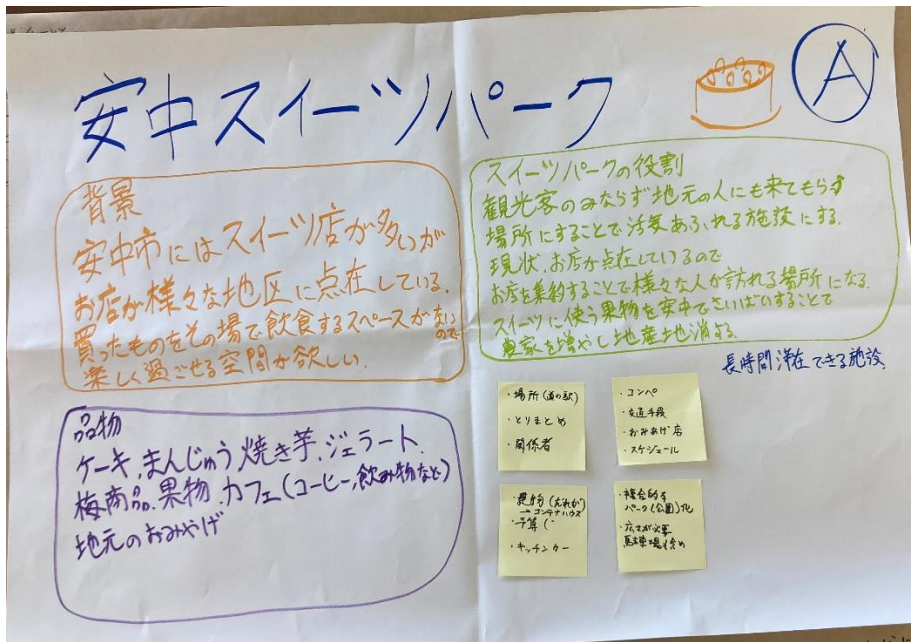 安中スイーツパーク
A
背景
安中市にはスイーツ店が多いが
お店が様々な地区に点在している。
買ったものをその場で飲食するスペースがないので
楽しく過ごせる空間が欲しい。
スイーツパークの役割
観光客のみならず地元の人にも来てもらう
場所にすることで活気あふれる施設にする。
現状、お店が点在しているので
お店を集約することで様々な人が訪れる場所になる。
スイーツに使う果物を安中でさいばいすることで
農家を増やし地産地消する。
長時間滞在できる施設。
品物
ケーキ、まんじゅう、焼き芋、ジェラート、
梅商品、果物、カフェ(コーヒー、飲み物など)
地元のおみやげ
・場所(道の駅)
・とりまとめ
・関係者
・コンペ
・交通手段
・おみあげ店
・スケジュール
・建物(だれが)
→コンテナハウス
・予算(
・キッチンカー
・複合的な
パーク(公園)化
・広さが必要
駐車場含め